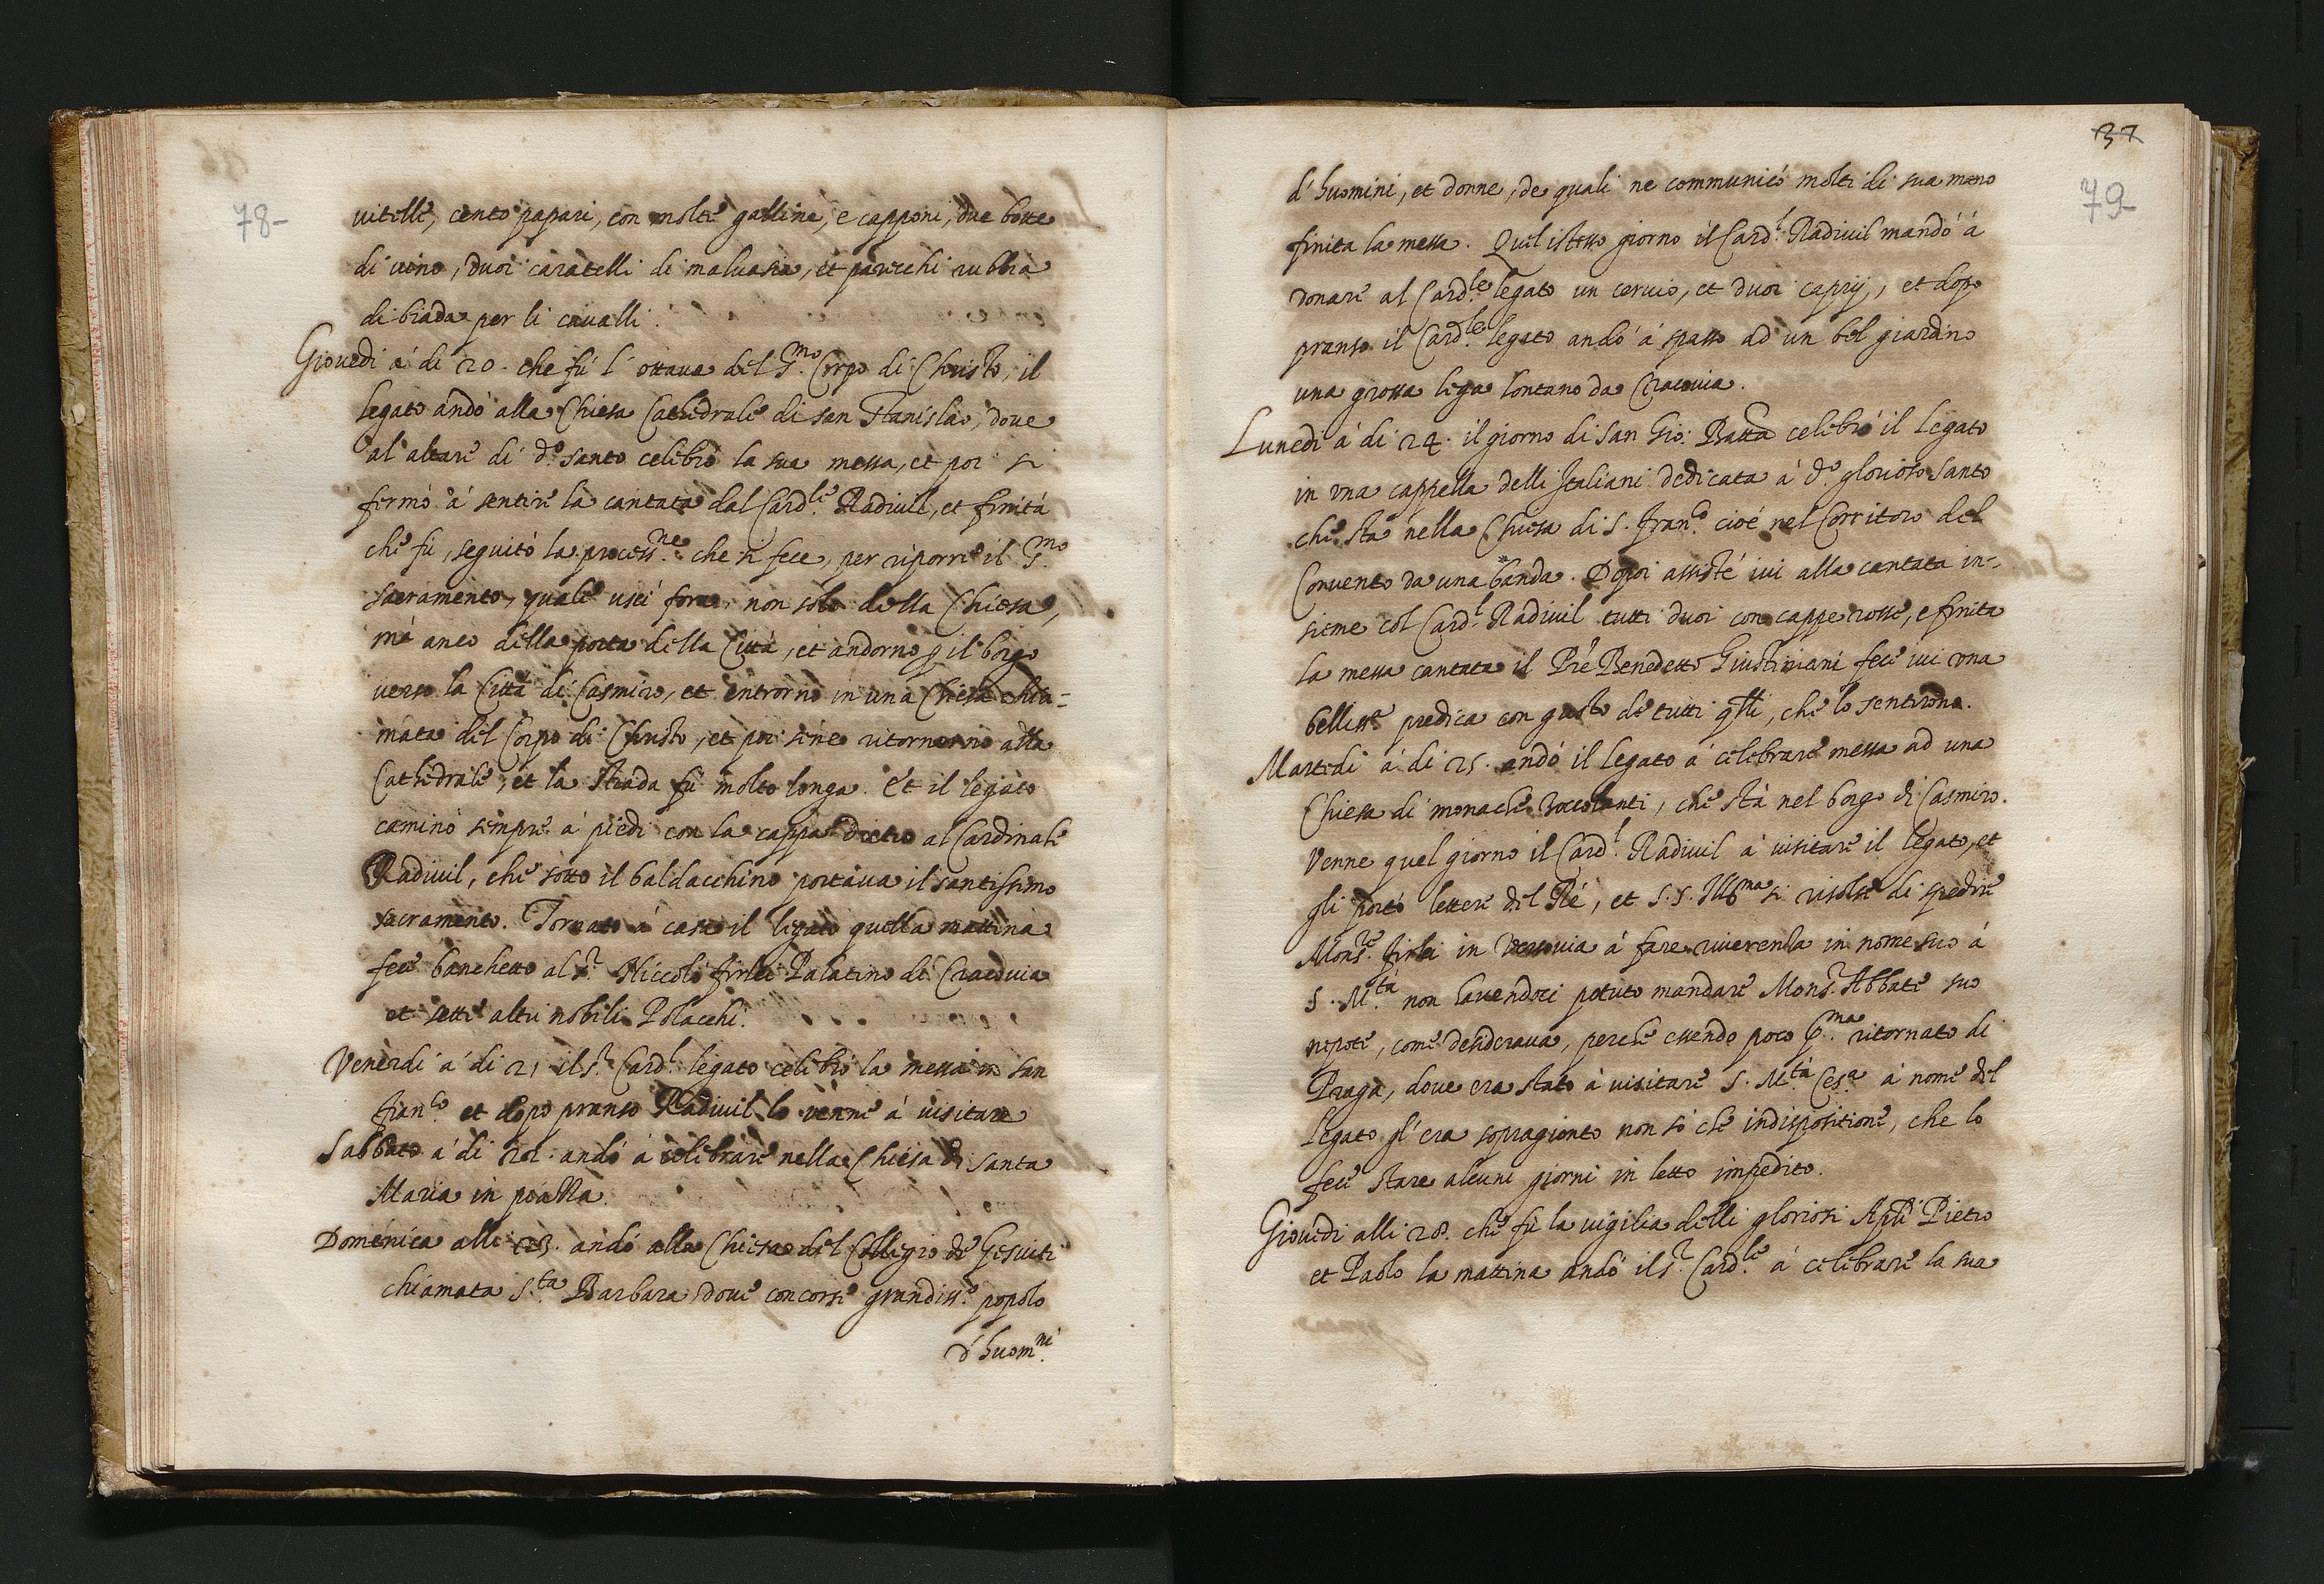 78-
vitelle, cento papari, con molte galline, e capponi, due botte
di vino, duoi caratelli di maluasia, et parecchi rubbia
di biada per li caualli.
Giouedi á di 20. che fú l'ottaua del S.mo Corpo di Christo, il
legato andò alla Chiesa Cathedrale di san Stanislao, doue
al altare di d.o santo celebrò la sua messa, et poi si
fermò á sentire la cantata dal Card.le Radiuil, et finita
che fú, seguitò la process.ne che si fece, per riporre il S.mo
sacramento, quale uscì fora, non solo della Chiesa,
má anco della porta della Città, et andorno p il borgo
uerso la Città di Casmiro, et entrorno in una Chiesa chia-
mata del Corpo di Christo, et poi se ne ritornorno alla
Cathedrale, et la strada fú molto longa. Et il legato
caminò sempre á piedi con la cappa dietro al Cardinale
Radiuil, che sotto il baldacchino portaua il santissimo
sacramento. Tornato á casa il legato quella mattina
fece banchetto al s.r Niccolò firlei Palatino di Cracouia
et sette altri nobili Polacchi.
Venerdi á di 21 il s.r Card.l legato celebrò la messa in san
fran.co et dopo pranso Radiuil lo venne á visitare
Sabbato á di 22. andò á celebrare nella Chiesa di santa
Maria in piazza
Domenica alli 23. andò alla Chiesa del Collegio de Gesuiti
chiamata S.ta Barbara doue concorse grandiss.o popolo
d'huom.ni
37
79-
d'huomini, et donne, de quali ne communicò molti di sua mano
finita la messa. Quel istesso giorno il Card.l Radiuil mandó á
donare al Card.le legato un ceruio, et duoi caprij, et dopo
pranso il Card.le legato andò á spasso ad un bel giardino
una grossa lega lontano da Cracouia.
Lunedi á di 24. il giorno di san Gio: Batta celebró il Legato
in una cappella delli Italiani dedicata á d.o glorioso santo
che stà nella Chiesa di S. Fran.co cioé nel Corritoro del
Convento da una banda. Dopoi assisté iui alla cantata in-
sieme col Card.l Radiuil tutti duoi con cappe rosse, e finita
la messa cantata il Pré Benedetto Giustiniani fece iui una
belliss.a predica con gusto de tutti qlli, che lo sentirono.
Martedi á di 25. andò il legato á celebrare messa ad una
Chiesa di monache zoccolanti, che stà nel borgo di Casmiro.
Venne quel giorno il Card.l Radiuil á uisitare il legato, et
gli portó lettere del Ré, et S.S. Ill.ma si risolse di spedire
Mons.re firlei in Varsouia á fare riuerenza in nome suo á
S. M.tá non hauendoci potuto mandare Mons.r Abbate suo
nepote, come desideraua, perche essendo poco p.ma ritornato di
Praga, doue era stato á uisitare S. M.tá Ces.a á nome del
Legato gl'era sopragionto non só che indispositione, che lo
fece stare alcuni giorni in letto impedito.
Giouedi alli 28. che fú la uigilia delli gloriosi Apli Pietro
et Paolo la mattina andò il s.r Card.le á celebrare la sua